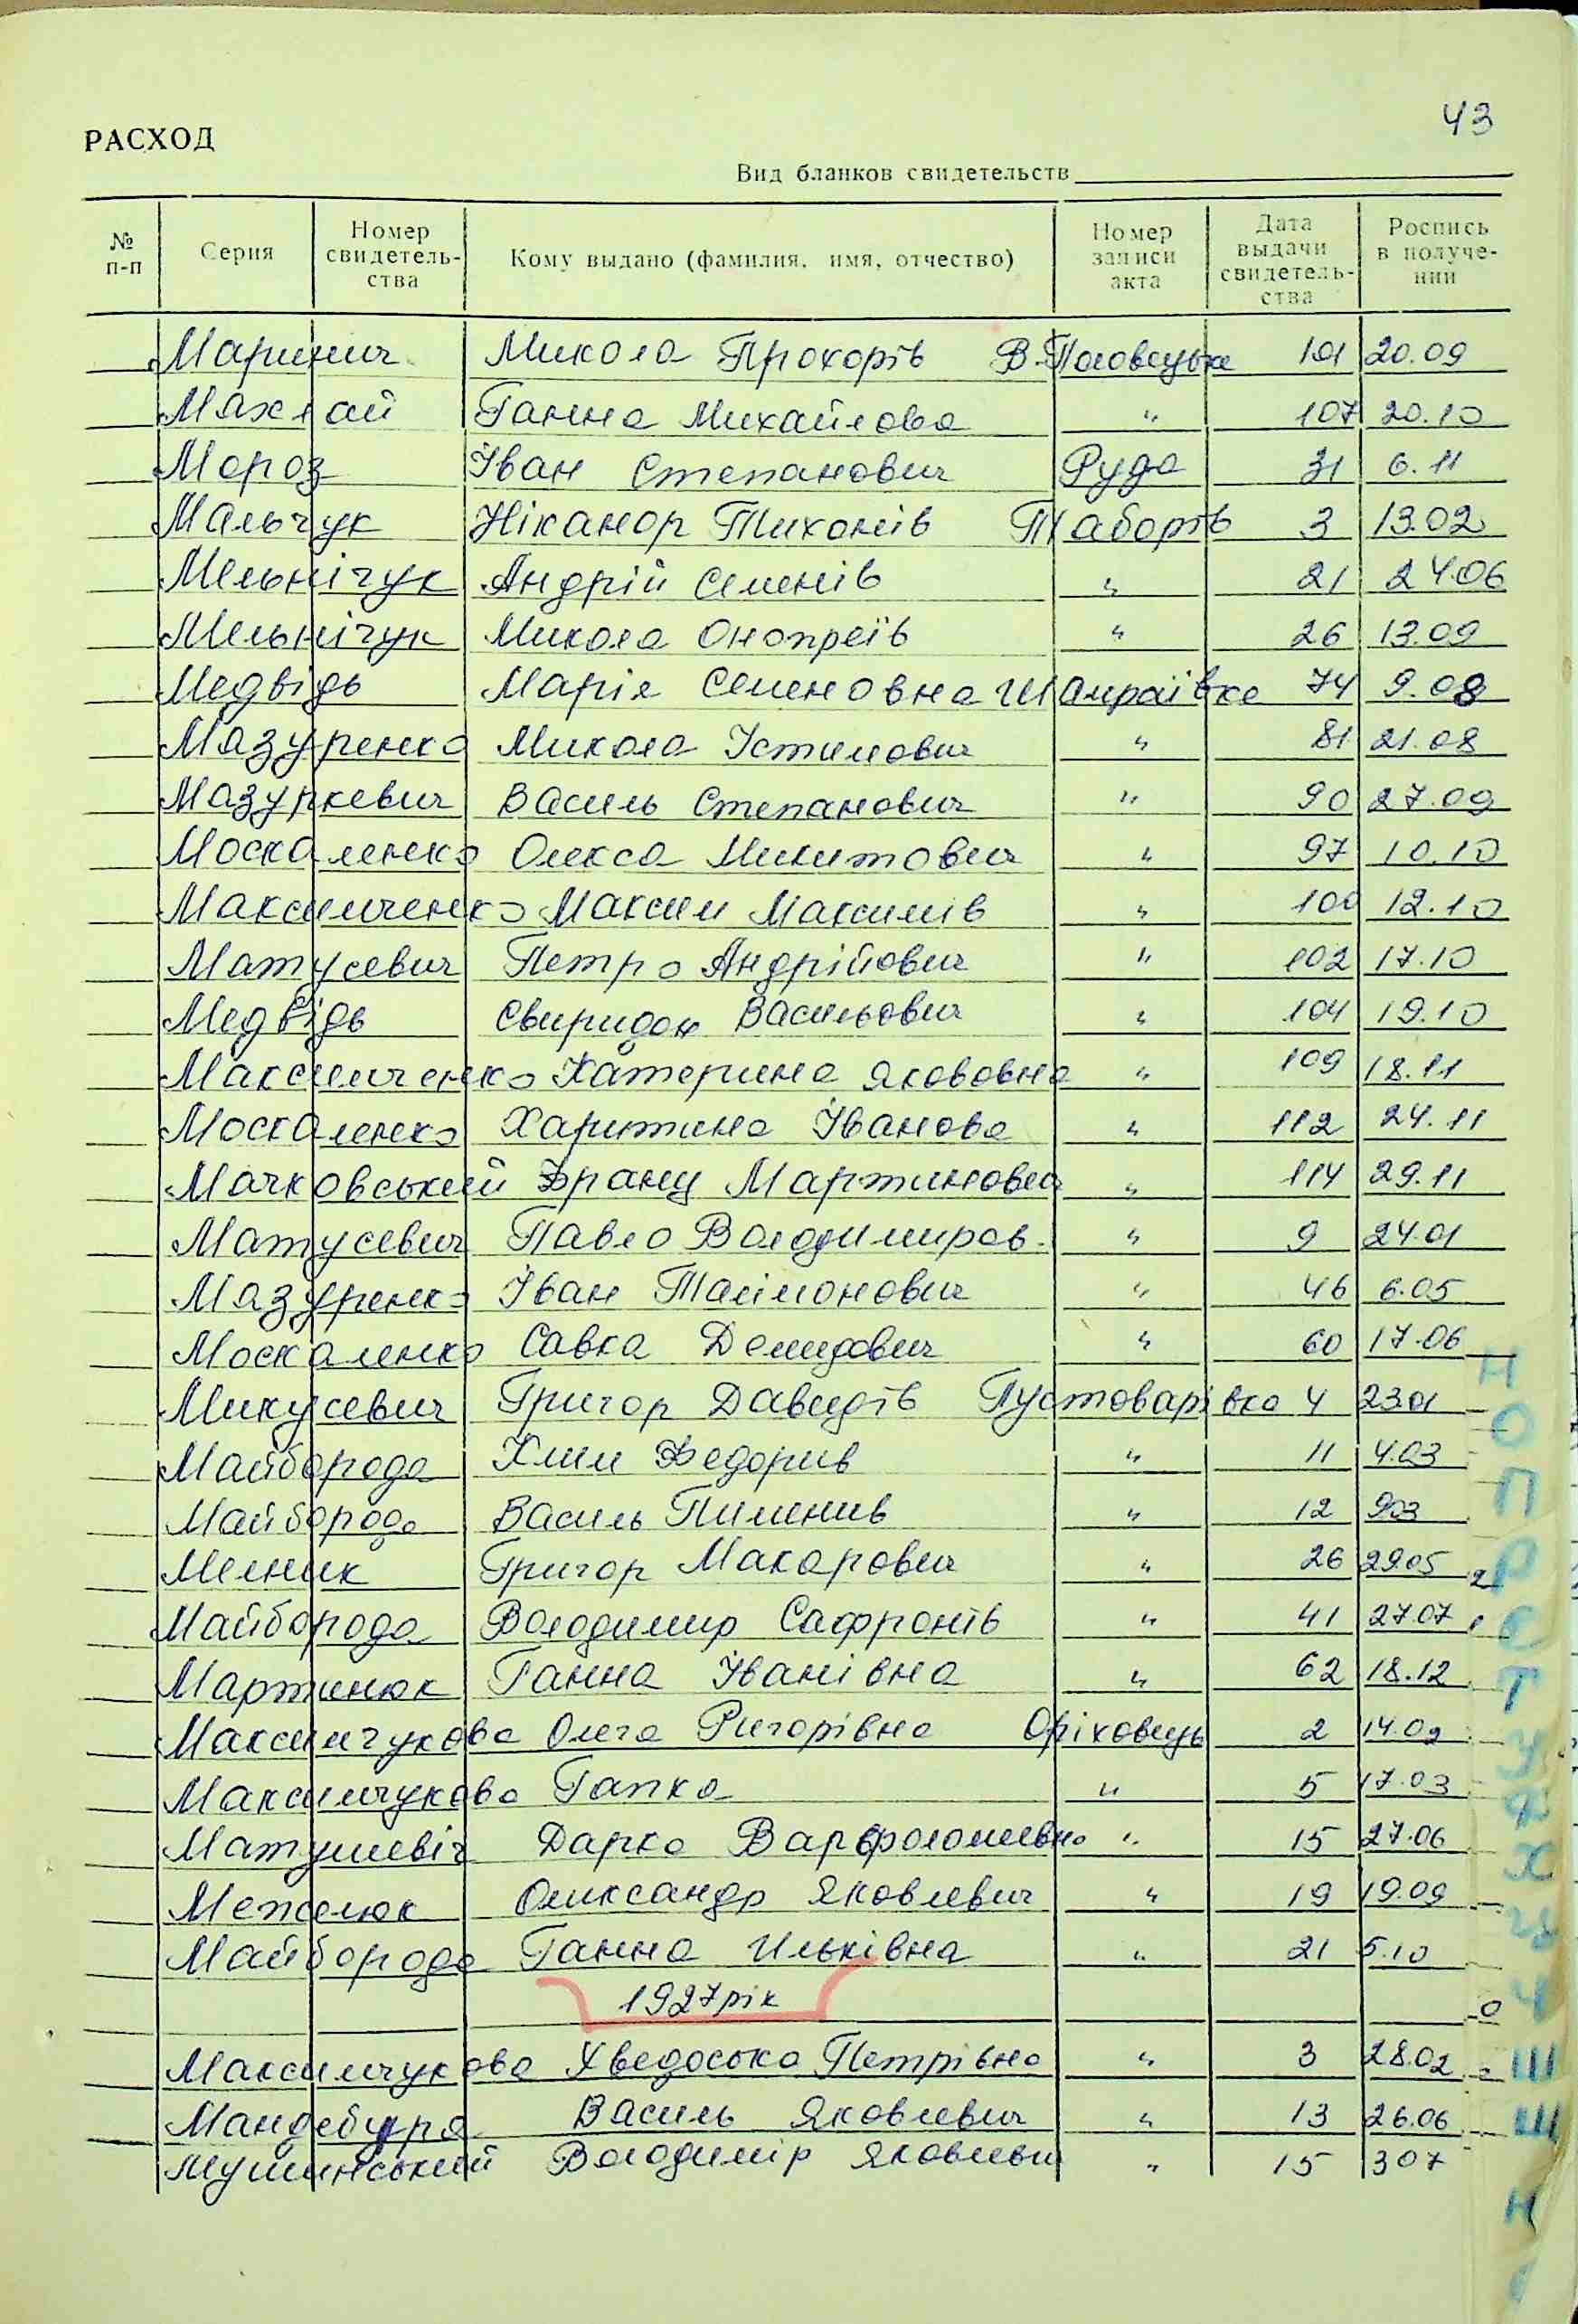 43
РАСХОД
Вид бланков свидетельств
№ п-п Серия Номер свидетель-ства Кому выдано (фамилия, имя, отчество) Номер записи акта Дата выдачи свидетель-ства Роспись в получе-нии
Маринич Микола Прохорів В.Половецьке 101 20.09
Махлай Ганна Михайлова " 107 20.10
Мороз Іван Степанович Руда 31 6.11
Мальчук Ніканор Тихонів Таборів 3 13.02
Мельнічук Андрій Семенів " 21 24.06
Мельнічук Микола Онопреїв " 26 13.09
Медвідь Марія Семеновна Шамраївка 74 9.08
Мазуренко Микола Устимович " 81 21.08
Мазуркевич Василь Степанович " 90 27.09
Москаленко Олекса Микитович " 97 10.10
Максимченко Максим Максимів " 100 12.10
Матусевич Петро Андрійович " 102 17.10
Медвідь Свиридон Васильович " 104 19.10
Максимченко Катерина Якововна " 109 18.11
Москаленко Харитина Іванова " 112 24.11
Мачковський Франц Мартинович " 114 29.11
Матусевич Павло Володимиров. " 9 24.01
Мазуренко Іван Таймонович " 46 6.05
Москаленко Савка Демидович " 60 17.06
Микусевич Григор Давидів Пустоварівка 4 23.01
Майборода Клим Федорив " 11 4.03
Майборода Василь Пименив " 12 9.03
Мелник Григор Макарович " 26 29.05
Майборода Володимир Сафронів " 41 27.07
Мартинюк Ганна Іванівна " 62 18.12
Максимчукова Олга Ригорівна Оріховець 2 14.02
Максимчукова Гапка " 5 17.03
Матушевіч Дарка Варфоломеевна " 15 27.06
Межелюк Олександр Яковлевич " 19 19.09
Майборода Ганна Ильківна " 21 5.10
1927рік
Максимчукова Хведоська Петрівна " 3 28.02
Мандебура Василь Яковлевич " 13 26.06
Мушинський Володимір Яковлевич " 15 3 07
Н
О
П
Р
С
Т
У
Ф
Х
Ц
Ч
Ш
Щ